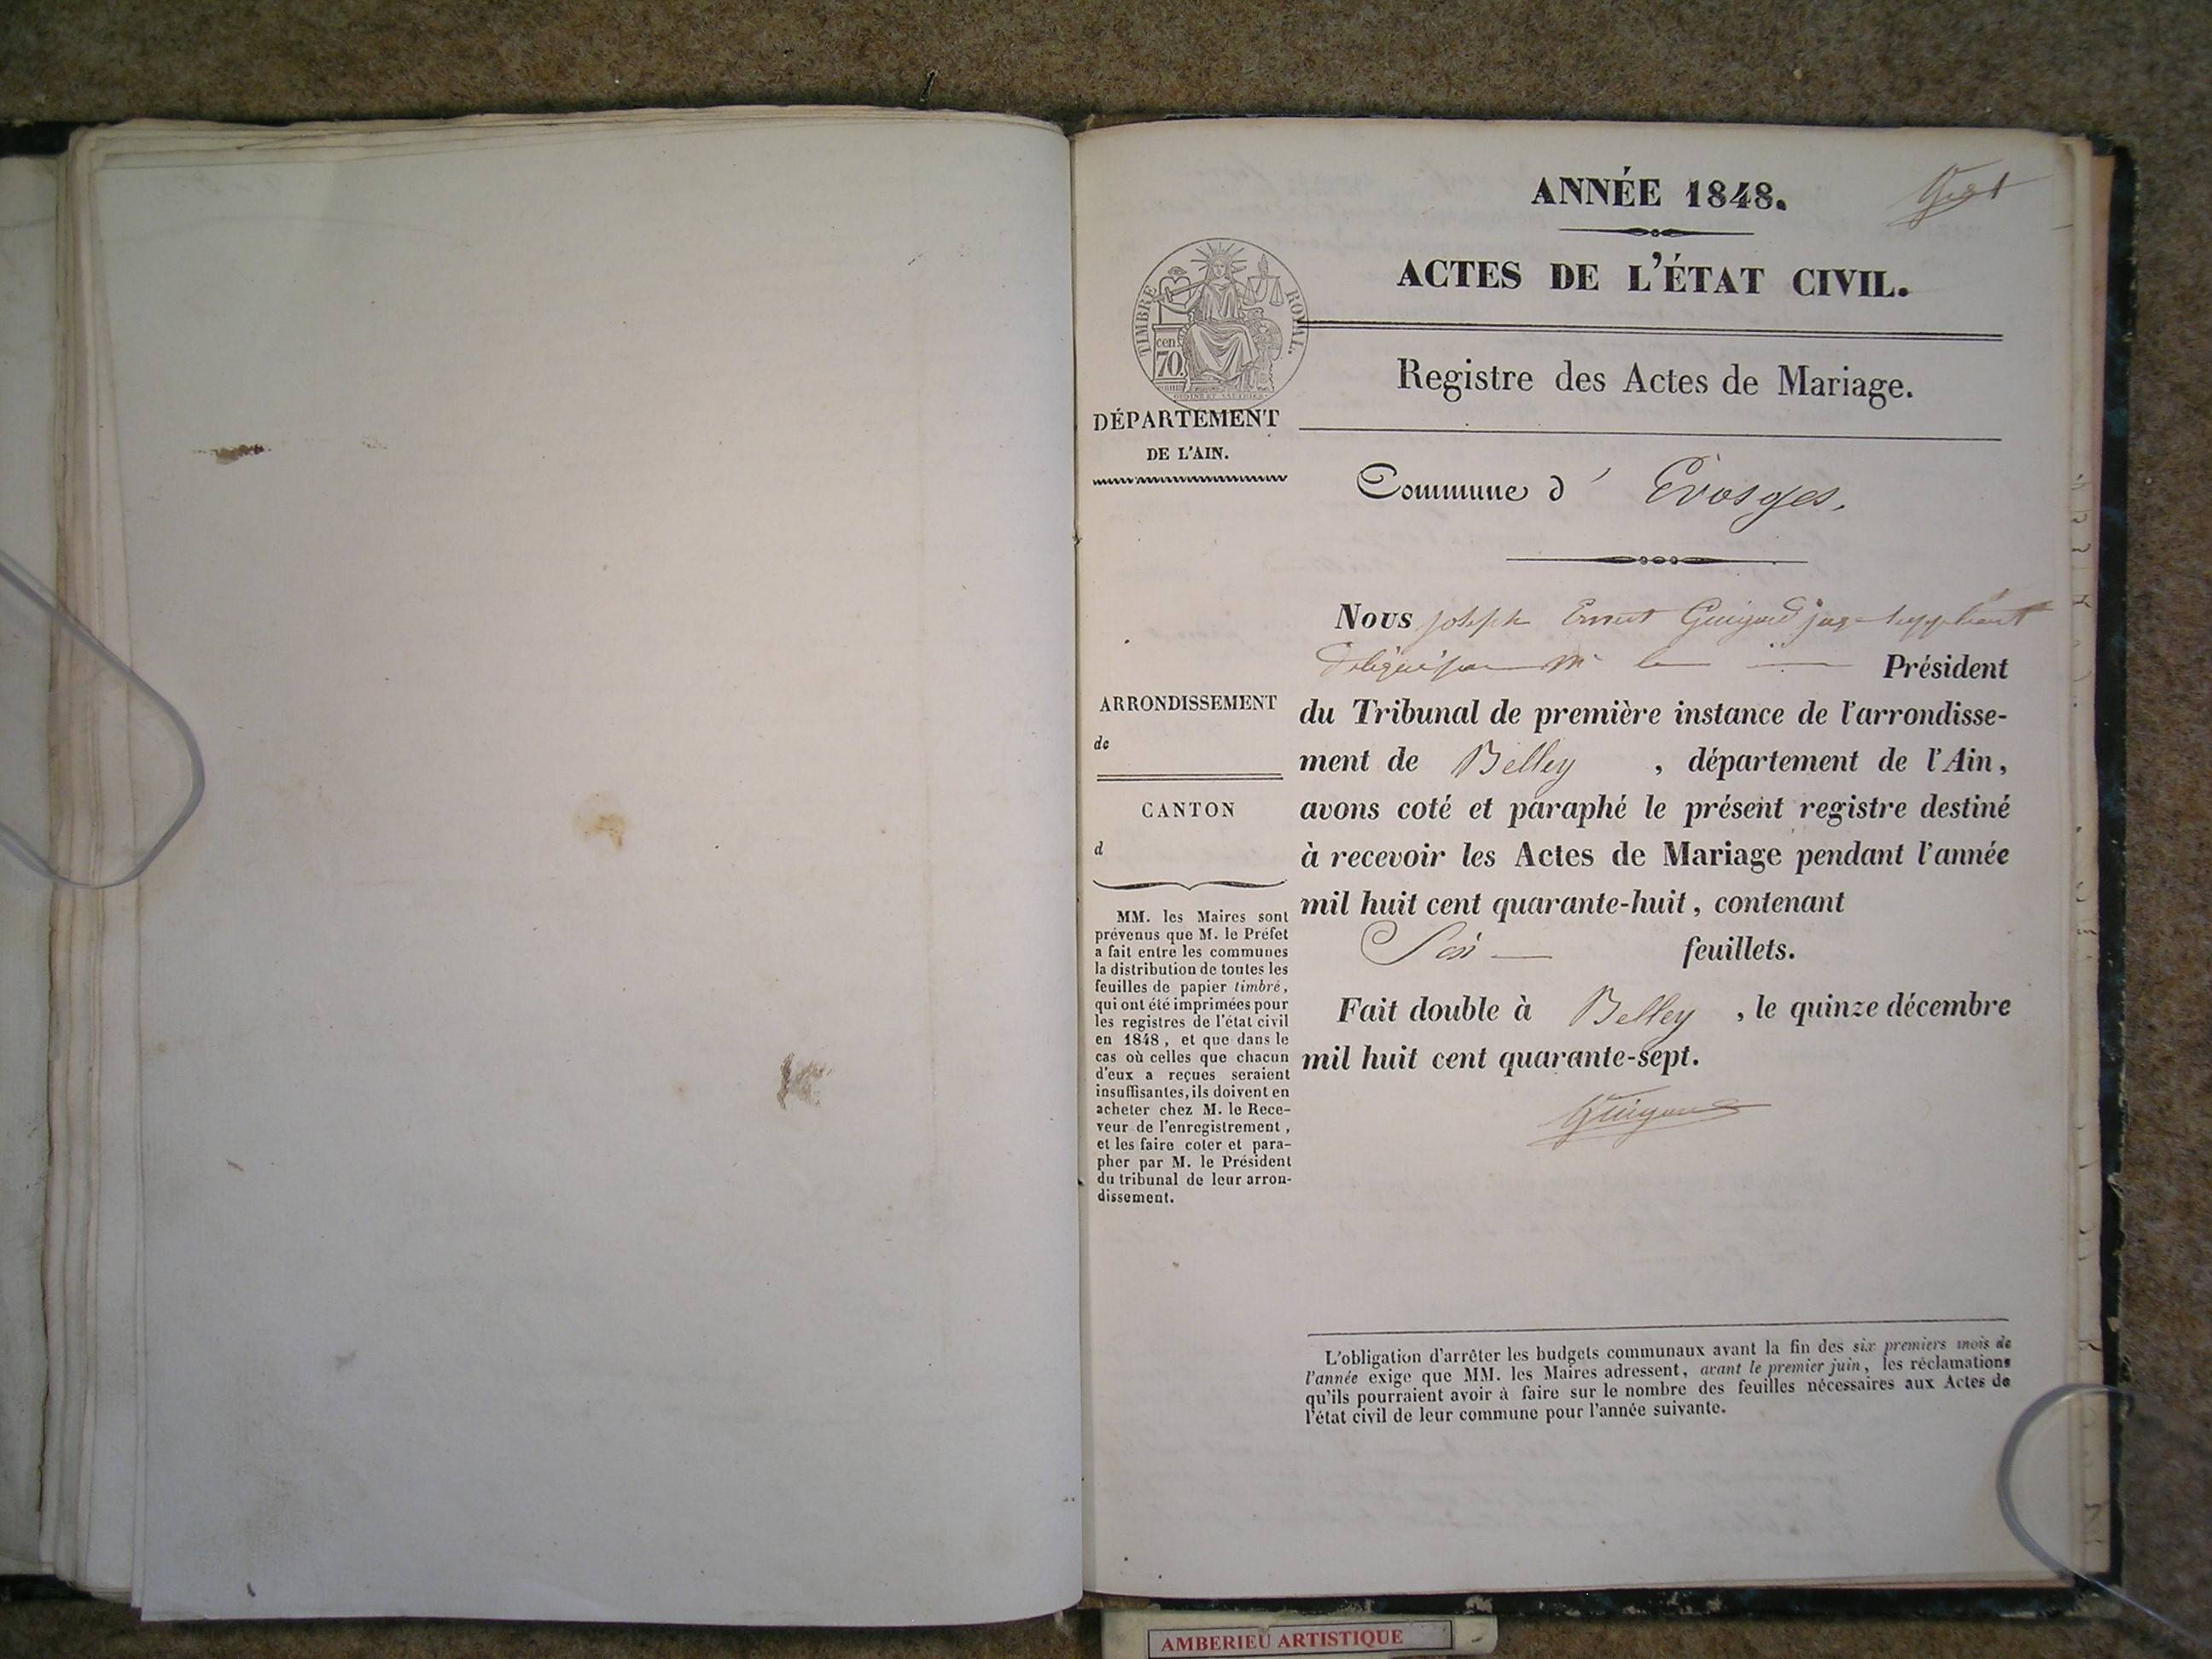 ANNÉE 1848.
ACTES DE L'ÉTAT CIVIL.
TIMBRE ROYAL.
cen.
70.
Registre des Actes de Mariage.
DÉPARTEMENT
DE L'AIN.
Commune d' Evosges.
Nous Joseph Ernest Guigard juge suppléant
délégué par Mr le Président
du Tribunal de première instance de l'arrondisse-
ment de Belley , département de l'Ain,
avons coté et paraphé le présent registre destiné
à recevoir les Actes de Mariage pendant l'année
mil huit cent quarante-huit, contenant
Six feuillets.
Fait double à Belley , le quinze décembre
mil huit cent quarante-sept.
ARRONDISSEMENT
de
CANTON
d
MM. les Maires sont
prévenus que M. le Préfet
a fait entre les communes
la distribution de toutes les
feuilles de papier timbré,
qui ont été imprimées pour
les registres de l'état civil
en 1848, et que dans le
cas où celles que chacun
d'eux a reçues seraient
insuffisantes, ils doivent en
acheter chez M. le Rece-
veur de l'enregistrement,
et les faire coter et para-
pher par M. le Président
du tribunal de leur arron-
dissement.
L'obligation d'arrêter les budgets communaux avant la fin des six premiers mois de
l'année exige que MM. les Maires adressent, avant le premier juin, les réclamations
qu'ils pourraient avoir à faire sur le nombre des feuilles nécessaires aux Actes de
l'état civil de leur commune pour l'année suivante.
AMBERIEU ARTISTIQUE